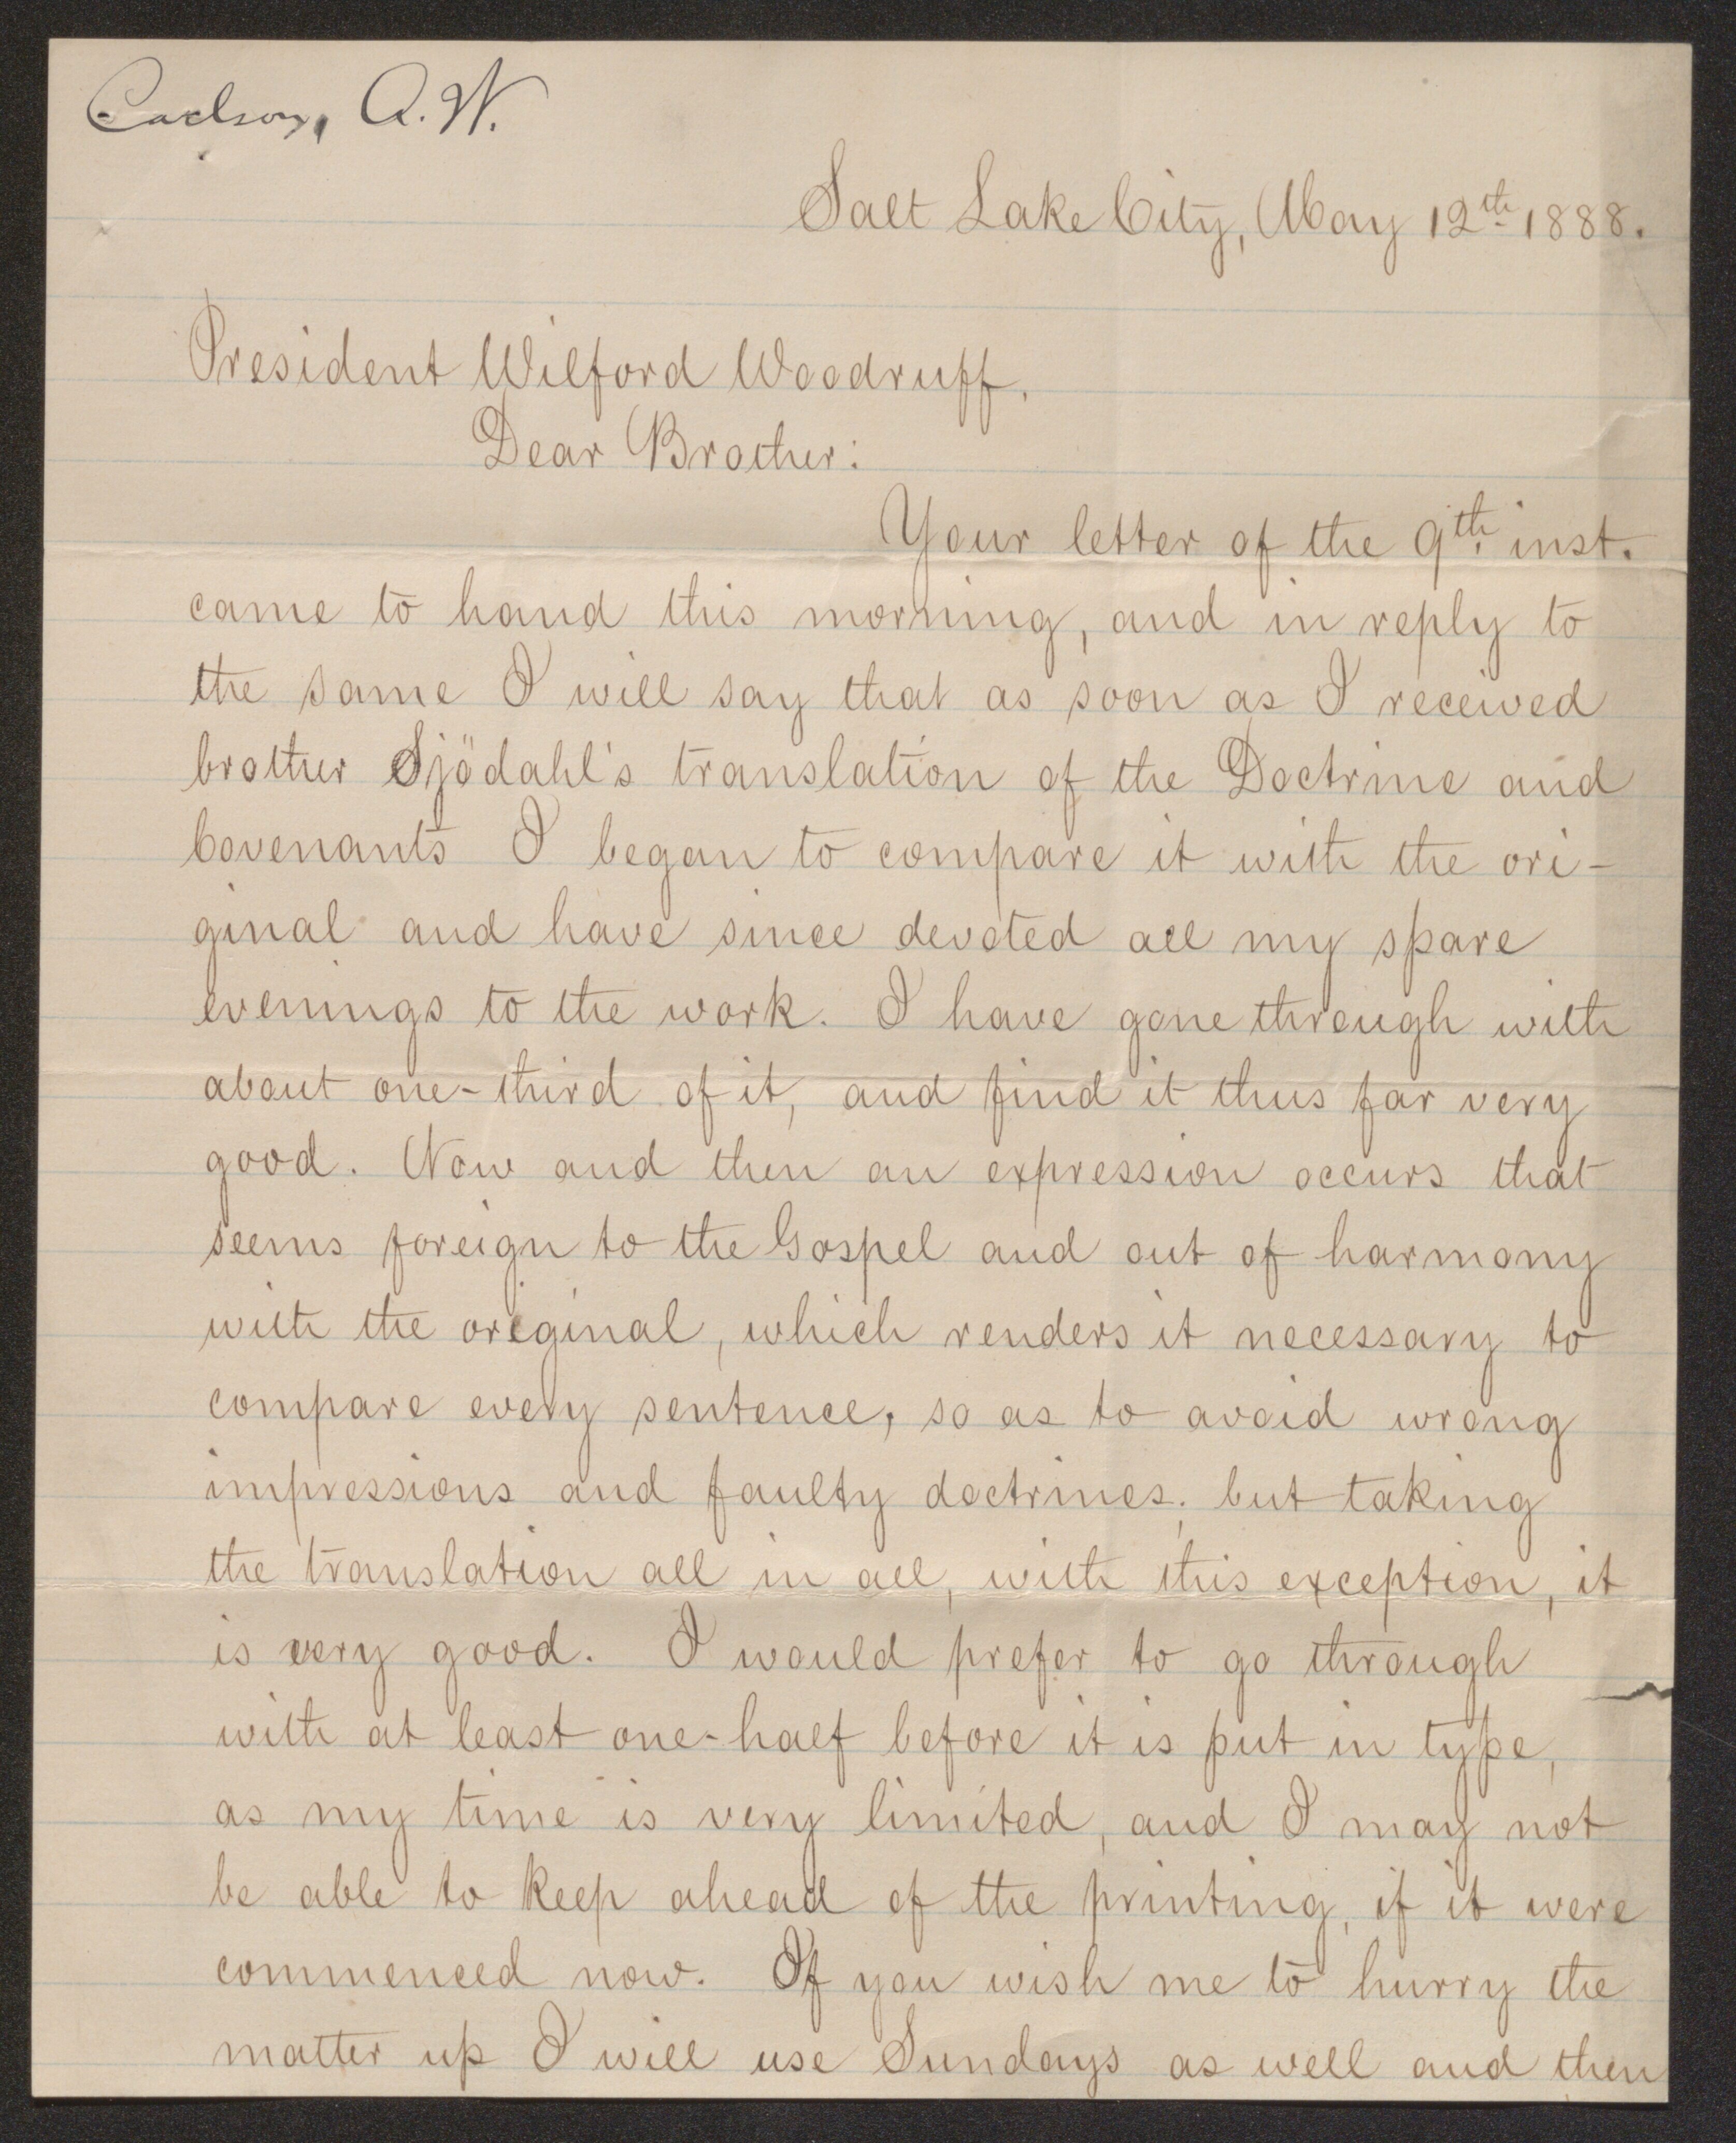 Carlson, A. W.
Salt Lake City, May 12th 1888.
President Wilford Woodruff.
Dear Brother:
Your letter of the 9th inst.
came to hand this morning, and in reply to
the same I will say that as soon as I received
brother Sjödahl's translation of the Doctrine and
Covenants I began to compare it with the ori-
ginal and have since devoted all my spare
evenings to the work. I have gone through with
about one-third of it, and find it thus far very
good. Now and then an expression occurs that
seems foreign to the Gospel and out of harmony
with the original, which renders it necessary to
compare every sentence, so as to avoid wrong
impressions and faulty doctrines; but taking
the translation all in all, with this exception, it
is very good. I would prefer to go through
with at least one-half before it is put in type,
as my time is very limited, and I may not
be able to keep ahead of the printing, if it were
commenced now. If you wish me to hurry the
matter up I will use Sundays as well and then